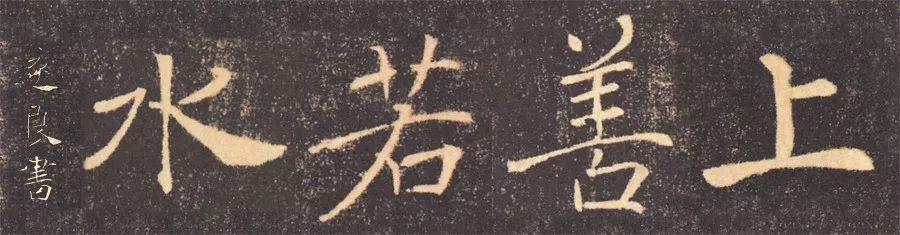 上善若水
遂良書